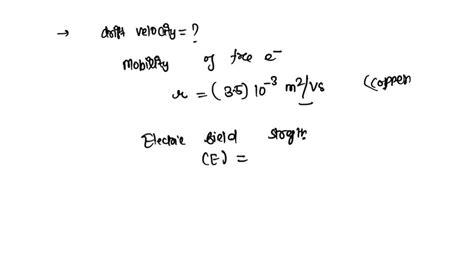 → drift velocity = ?
Mobility of free e⁻
μ = (3.5) 10⁻³ m²/Vs (copper
Electric field strength
(E) =